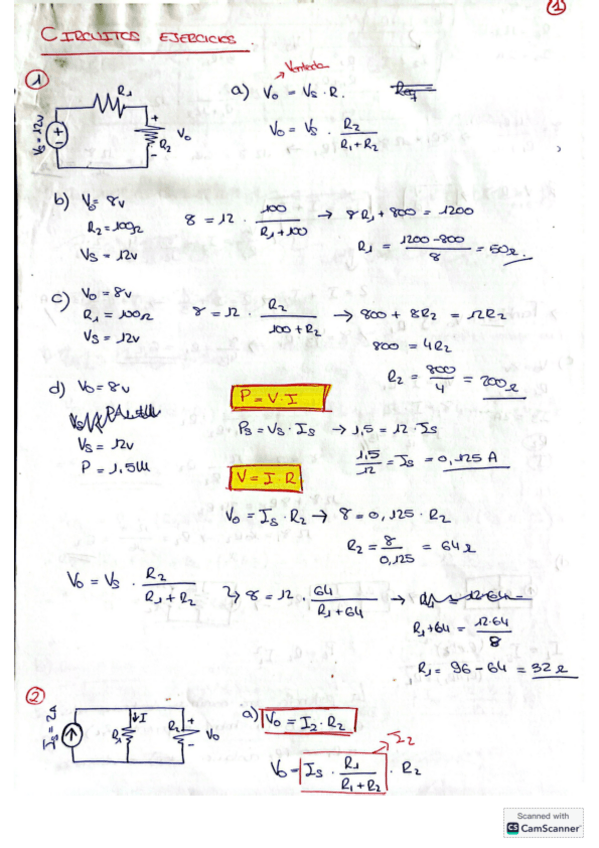 1
CIRCUITOS EJERCICIOS
1
Vs = 12V
R1
+
-
R2
Vo
a) Vo = Vs · R.
Vo = Vs · R2 / R1 + R2
b) Vo = 8V
R2 = 100Ω
Vs = 12V
8 = 12 · 100 / R1 + 100 → 8R1 + 800 = 1200
R1 = 1200 - 800 / 8 = 50Ω
c) Vo = 8V
R1 = 100Ω
Vs = 12V
8 = 12 · R2 / 100 + R2 → 800 + 8R2 = 12R2
800 = 4R2
R2 = 800 / 4 = 200Ω
d) Vo = 8V
Vs = 12V
P = 1,5W
P = V · I
Ps = Vs · Is → 1,5 = 12 · Is
1,5 / 12 = Is = 0,125 A
V = I · R
Vo = Is · R2 → 8 = 0,125 · R2
R2 = 8 / 0,125 = 64Ω
Vo = Vs · R2 / R1 + R2
↳ 8 = 12 · 64 / R1 + 64 →
R1 + 64 = 12·64 / 8
R1 = 96 - 64 = 32Ω
2
Is = 2A
↓I
R1
R2
+
-
Vo
a) Vo = I2 · R2
I2
Vo = Is · R1 / R1 + R2 · R2
Scanned with
CS CamScanner